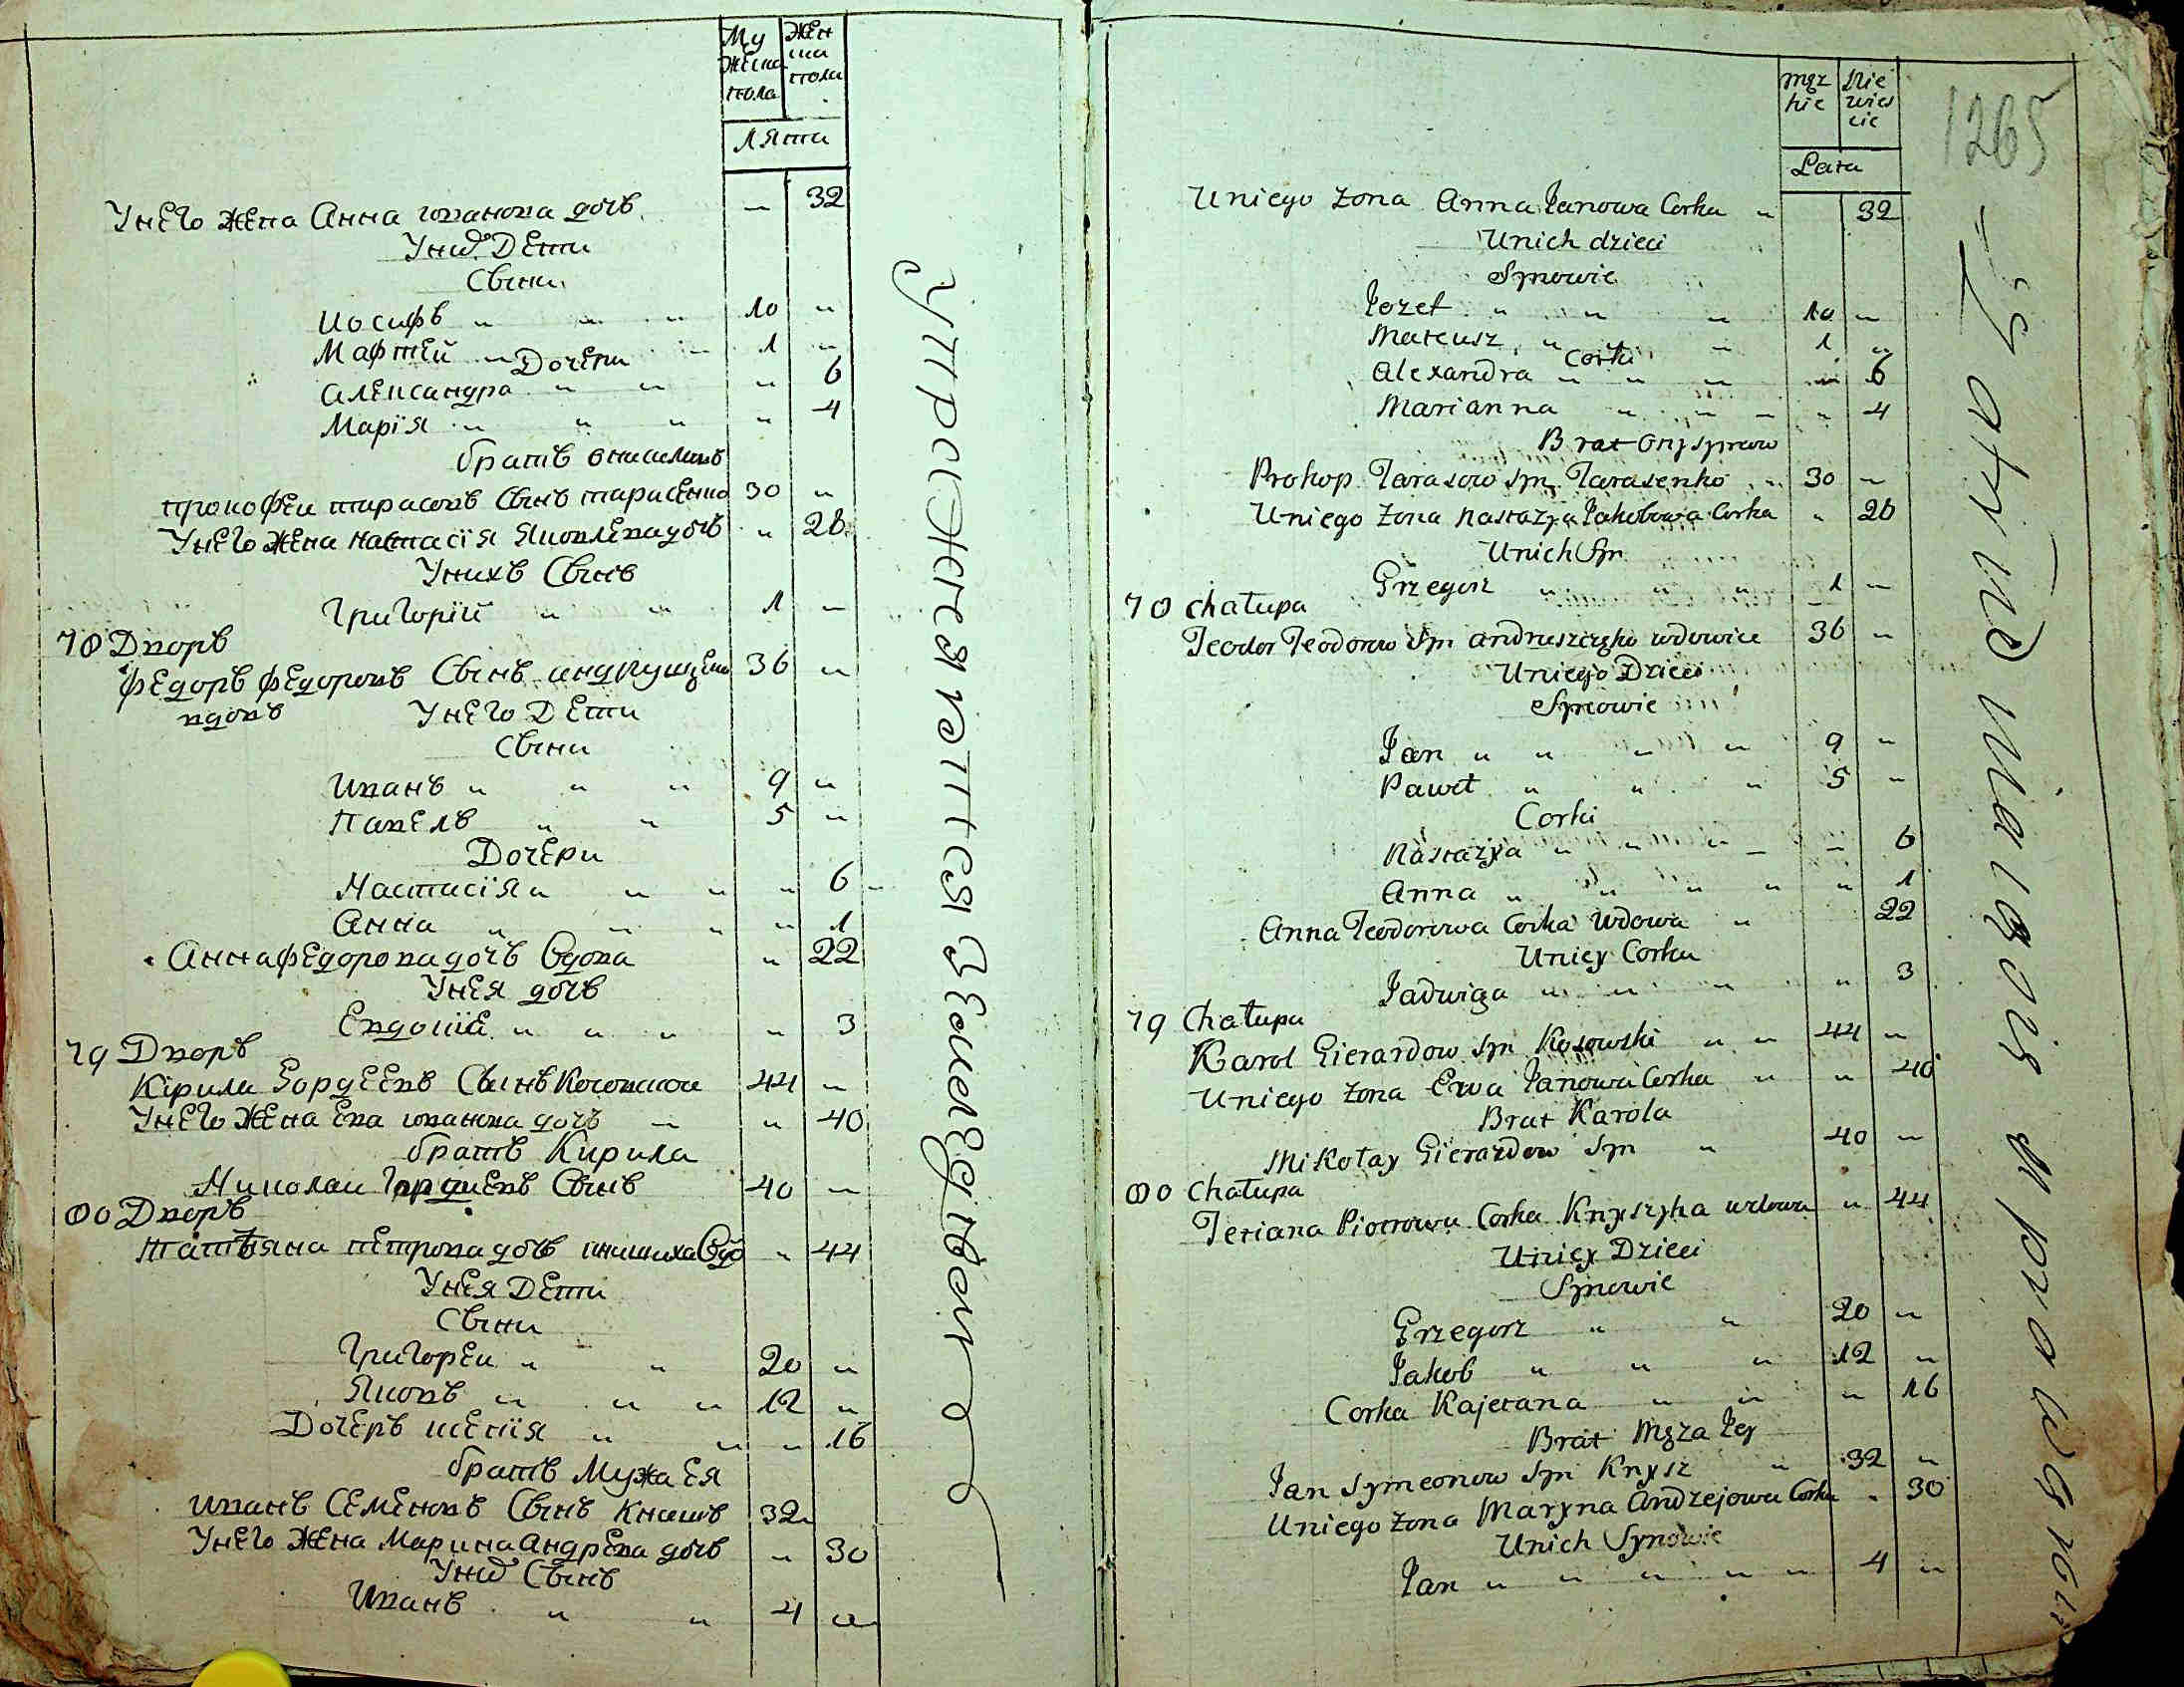 Му Жен
жеска ска
пола пола
Ляти
У нЕго жена Анна иванова дочъ „ 32
У них Дети
Сыни
Иосифъ „ „ „ 10 „
Мафтей „ „ 1 „
Дочери
Александра „ „ „ 6
Марія „ „ „ „ 4
братъ онисимовъ
прокофеи тарасовъ Сынъ тарасенко 30 „
У нЕго жена настасія Яковлева дочъ „ 26
У нихъ Сынъ
Григорій „ „ 1 „
78 Дворъ
федоръ федоровъ Сынъ андрущенко 36 „
вдовъ У нЕго Дети
Сыни
Иванъ „ „ „ 9 „
Павелъ „ „ 5 „
Дочери
Настасія „ „ „ „ 6 „
Анна „ „ „ „ 1
Анна федорова дочъ Вдова „ 22
У нея дочъ
Евдокія „ „ „ „ 3
79 Дворъ
Кірила Гордеевъ Сынъ Косовскои 44 „
У нЕго жена Ева иванова дочъ „ „ 40
братъ Кирила
Николаи Гордиевъ Сынъ 40 „
80 Дворъ
татъяна петрова дочъ книшиха Вдо „ 44
У нея Дети
Сыни
Григореи „ „ 20 „
Яковъ „ „ „ 12 „
Дочеръ ксенія „ „ „ 16
братъ Мужа Ея
иванъ Семеновъ Сынъ Книшъ 32 „
У нЕго жена Марина Андрева дочъ „ 30
У них Сынъ
Иванъ „ „ 4 „
1265
męz Nie
kie wies
cie
Lata
U niego żona Anna Janowa Corka „ 32
U nich dzieci
Synowie
Jozef „ „ „ 10 „
Mateusz „ „ „ 1 „
Corki
Alexandra „ „ „ „ 6
Marianna „ „ „ „ 4
Brat Onysymow
Prokop Tarasow syn Tarasenko „ 30 „
U niego żona Nastazya Jakobowa Corka „ 26
U nich Syn
Grzegorz „ „ „ 1 „
78 chałupa
Teodor Teodorow Syn andruszczęko wdowiec 36 „
U niego Dzieci
Synowie
Jan „ „ „ „ 9 „
Paweł „ „ „ 5 „
Corki
Nastazya „ „ „ „ „ 6
Anna „ „ „ „ „ 1
Anna Teodorowa Corka Wdowa „ 22
U niey Corka
Jadwiga „ „ „ „ 3
79 Chałupa
Karol Gierardow Syn Kosowski „ „ 44 „
U niego żona Ewa Janowa Corka „ „ 40
Brat Karola
Mikołay Gierardow Syn „ 40 „
80 Chałupa
Teriana Piotrowa Corka Knyszyha wdowa „ 44
U niey Dzieci
Synowie
Grzegorz „ „ 20 „
Jakob „ „ „ 12 „
Corka Kajetana „ „ „ 16
Brat Męża Jey
Jan Symeonow Syn Knysz „ 32 „
U niego żona Maryna Andrzejowa Corka „ 30
U nich Synowie
Jan „ „ „ „ „ 4 „